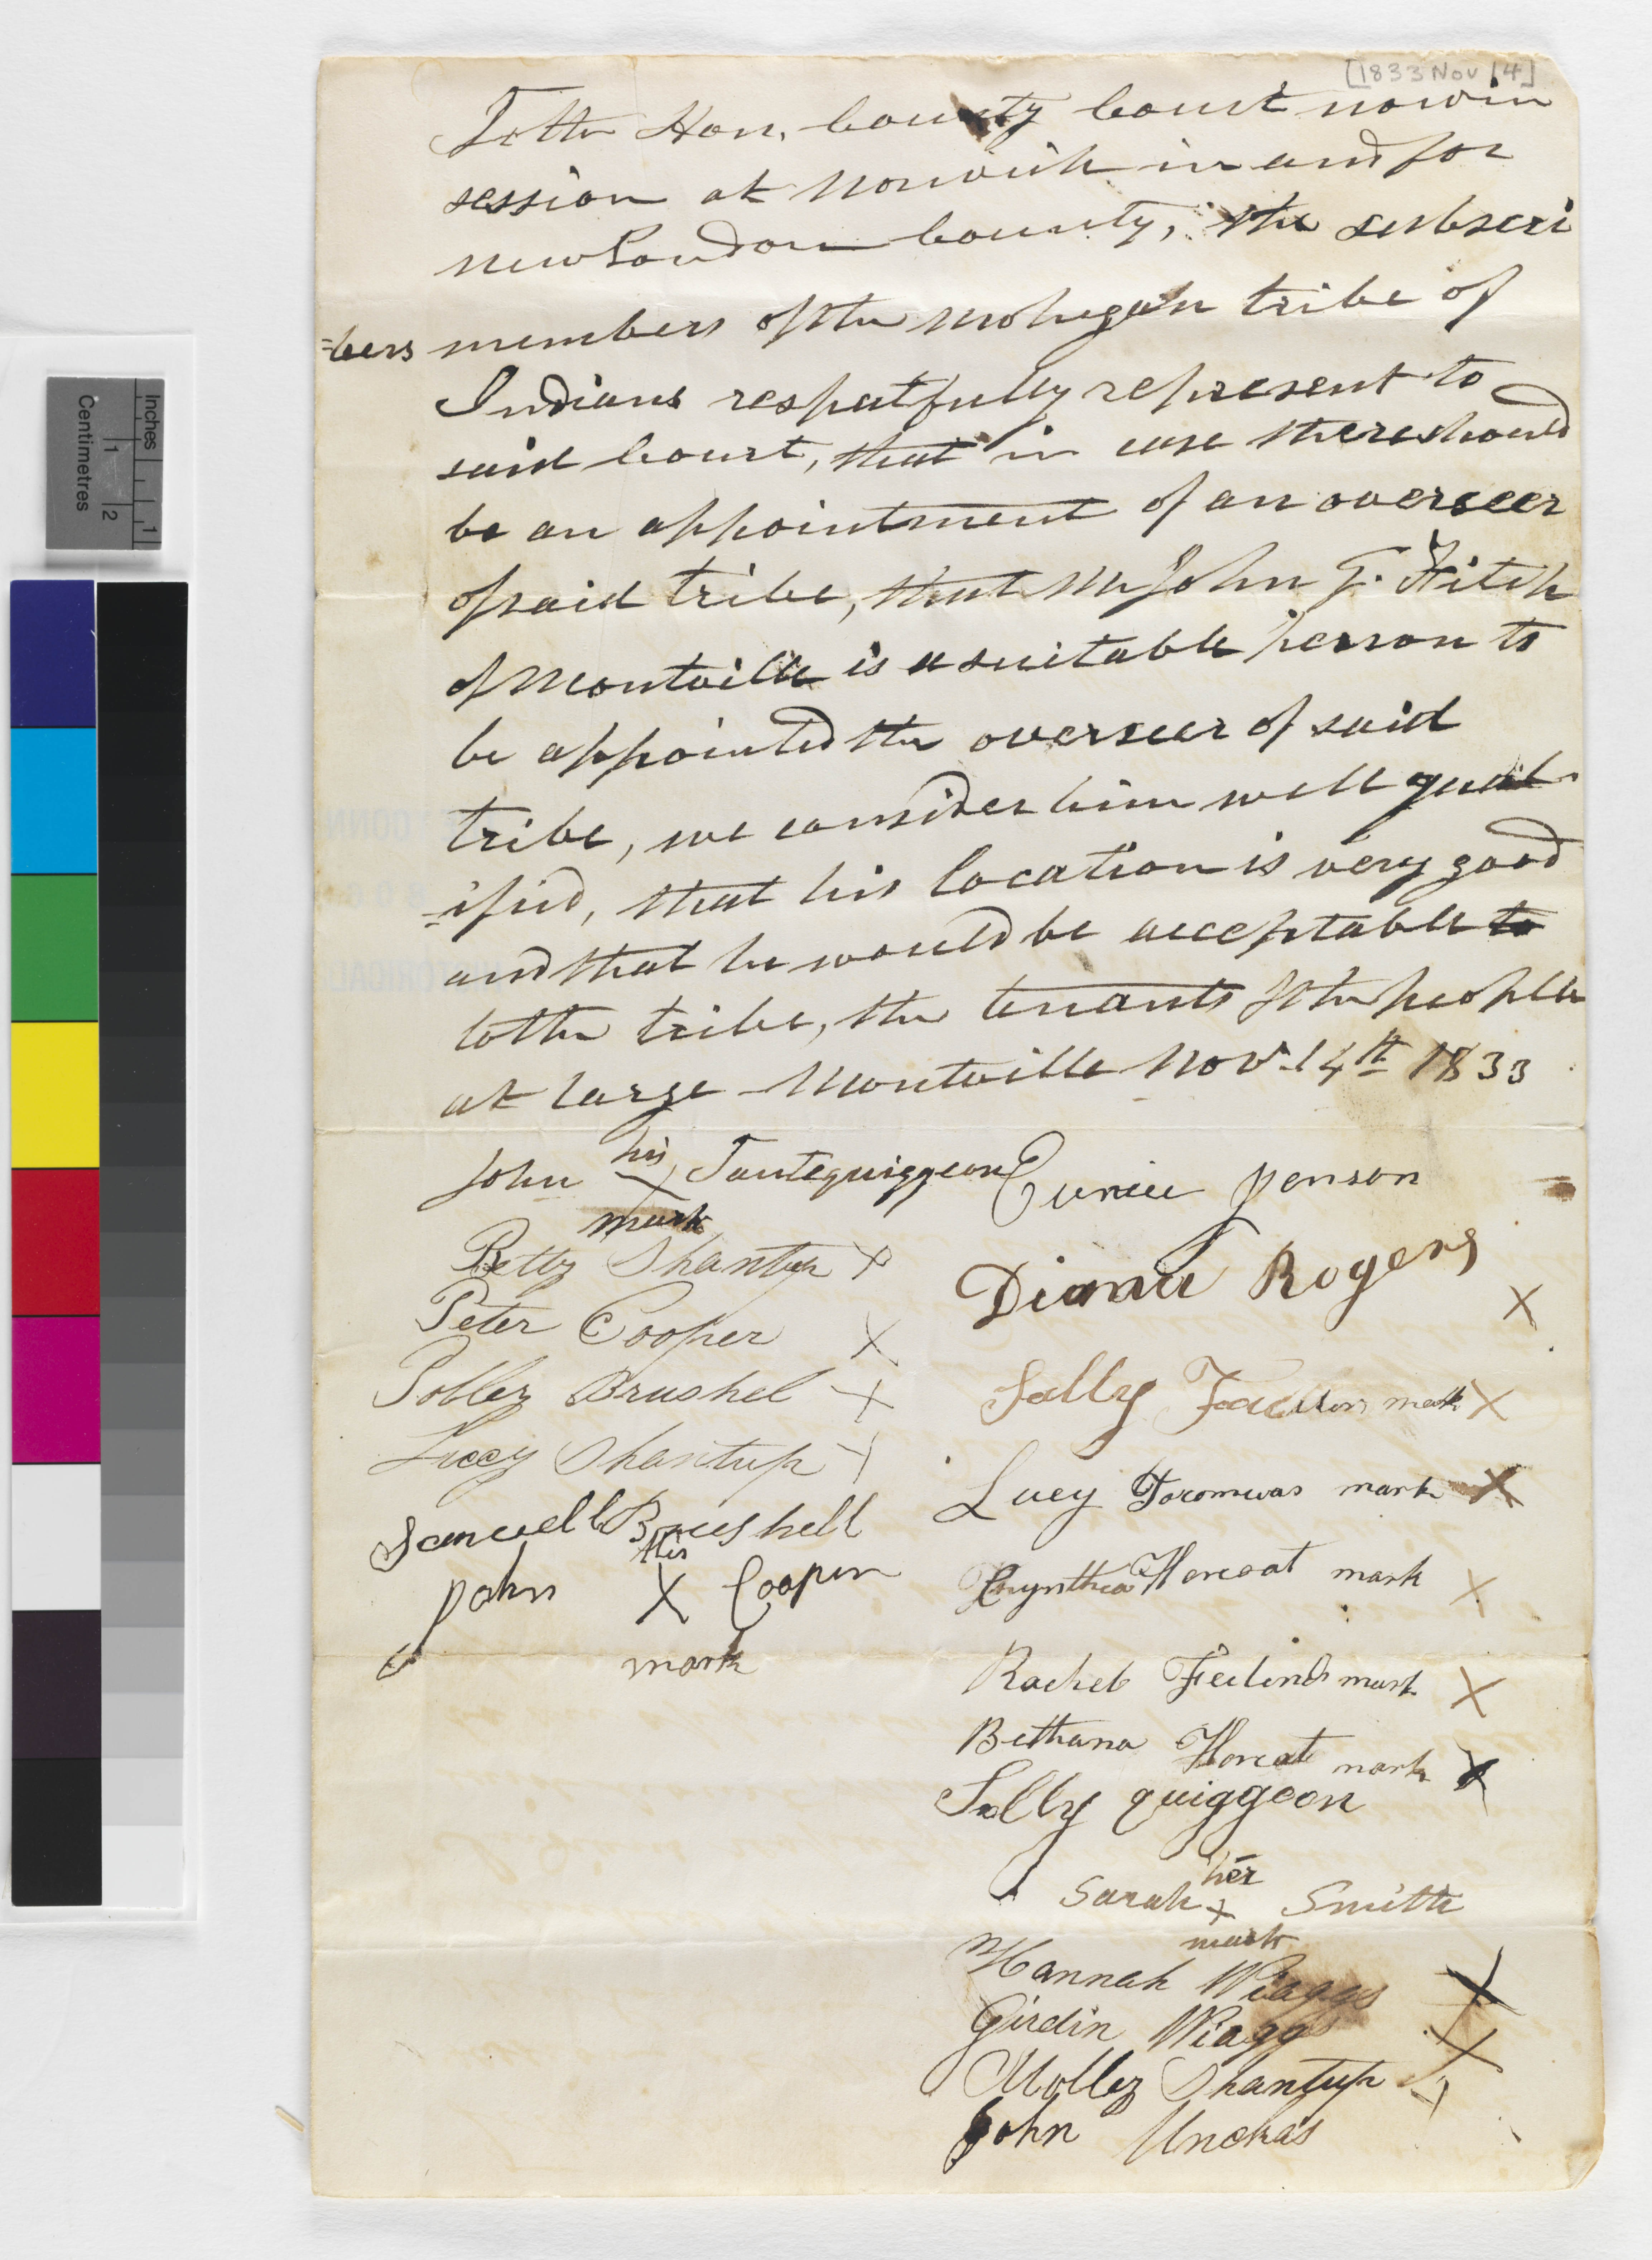 [1833 Nov 14]
To the Hon. County Court now in
session at Norwich in and for
New London County, the subscri
=bers members of the Mohegan tribe of
Indians respectfully represent to
said Court, that in case there should
be an appointment of an overseer
of said tribe, that Mr John G. Fitch
of Montville is a suitable person to
be appointed the overseer of said
tribe, we consider him well qual-
=ified, that his location is very good
and that he would be acceptable to
to the tribe, the tenants & the people
at large Montville Nov. 14th 1833
John his X mark Tantequiggeon
Betty Shantup X
Peter Cooper X
Polley Brushel X
Lucy Shantup X
Samuell Brushell
John his X mark Cooper
Eunice Jonson
Diana Rogers X
Sally mark X
Lucy Tocomwas mark X
Cynthia Horscoat mark X
Rachel Feilends mark X
Bethana Horscat mark X
Solly quiggeon
Sarah her X mark Smith
Hannah Wiaggs X
Girdin Wiagg X
Molley Shantup X
John Unckas
Inches
1
Centimetres
1
2